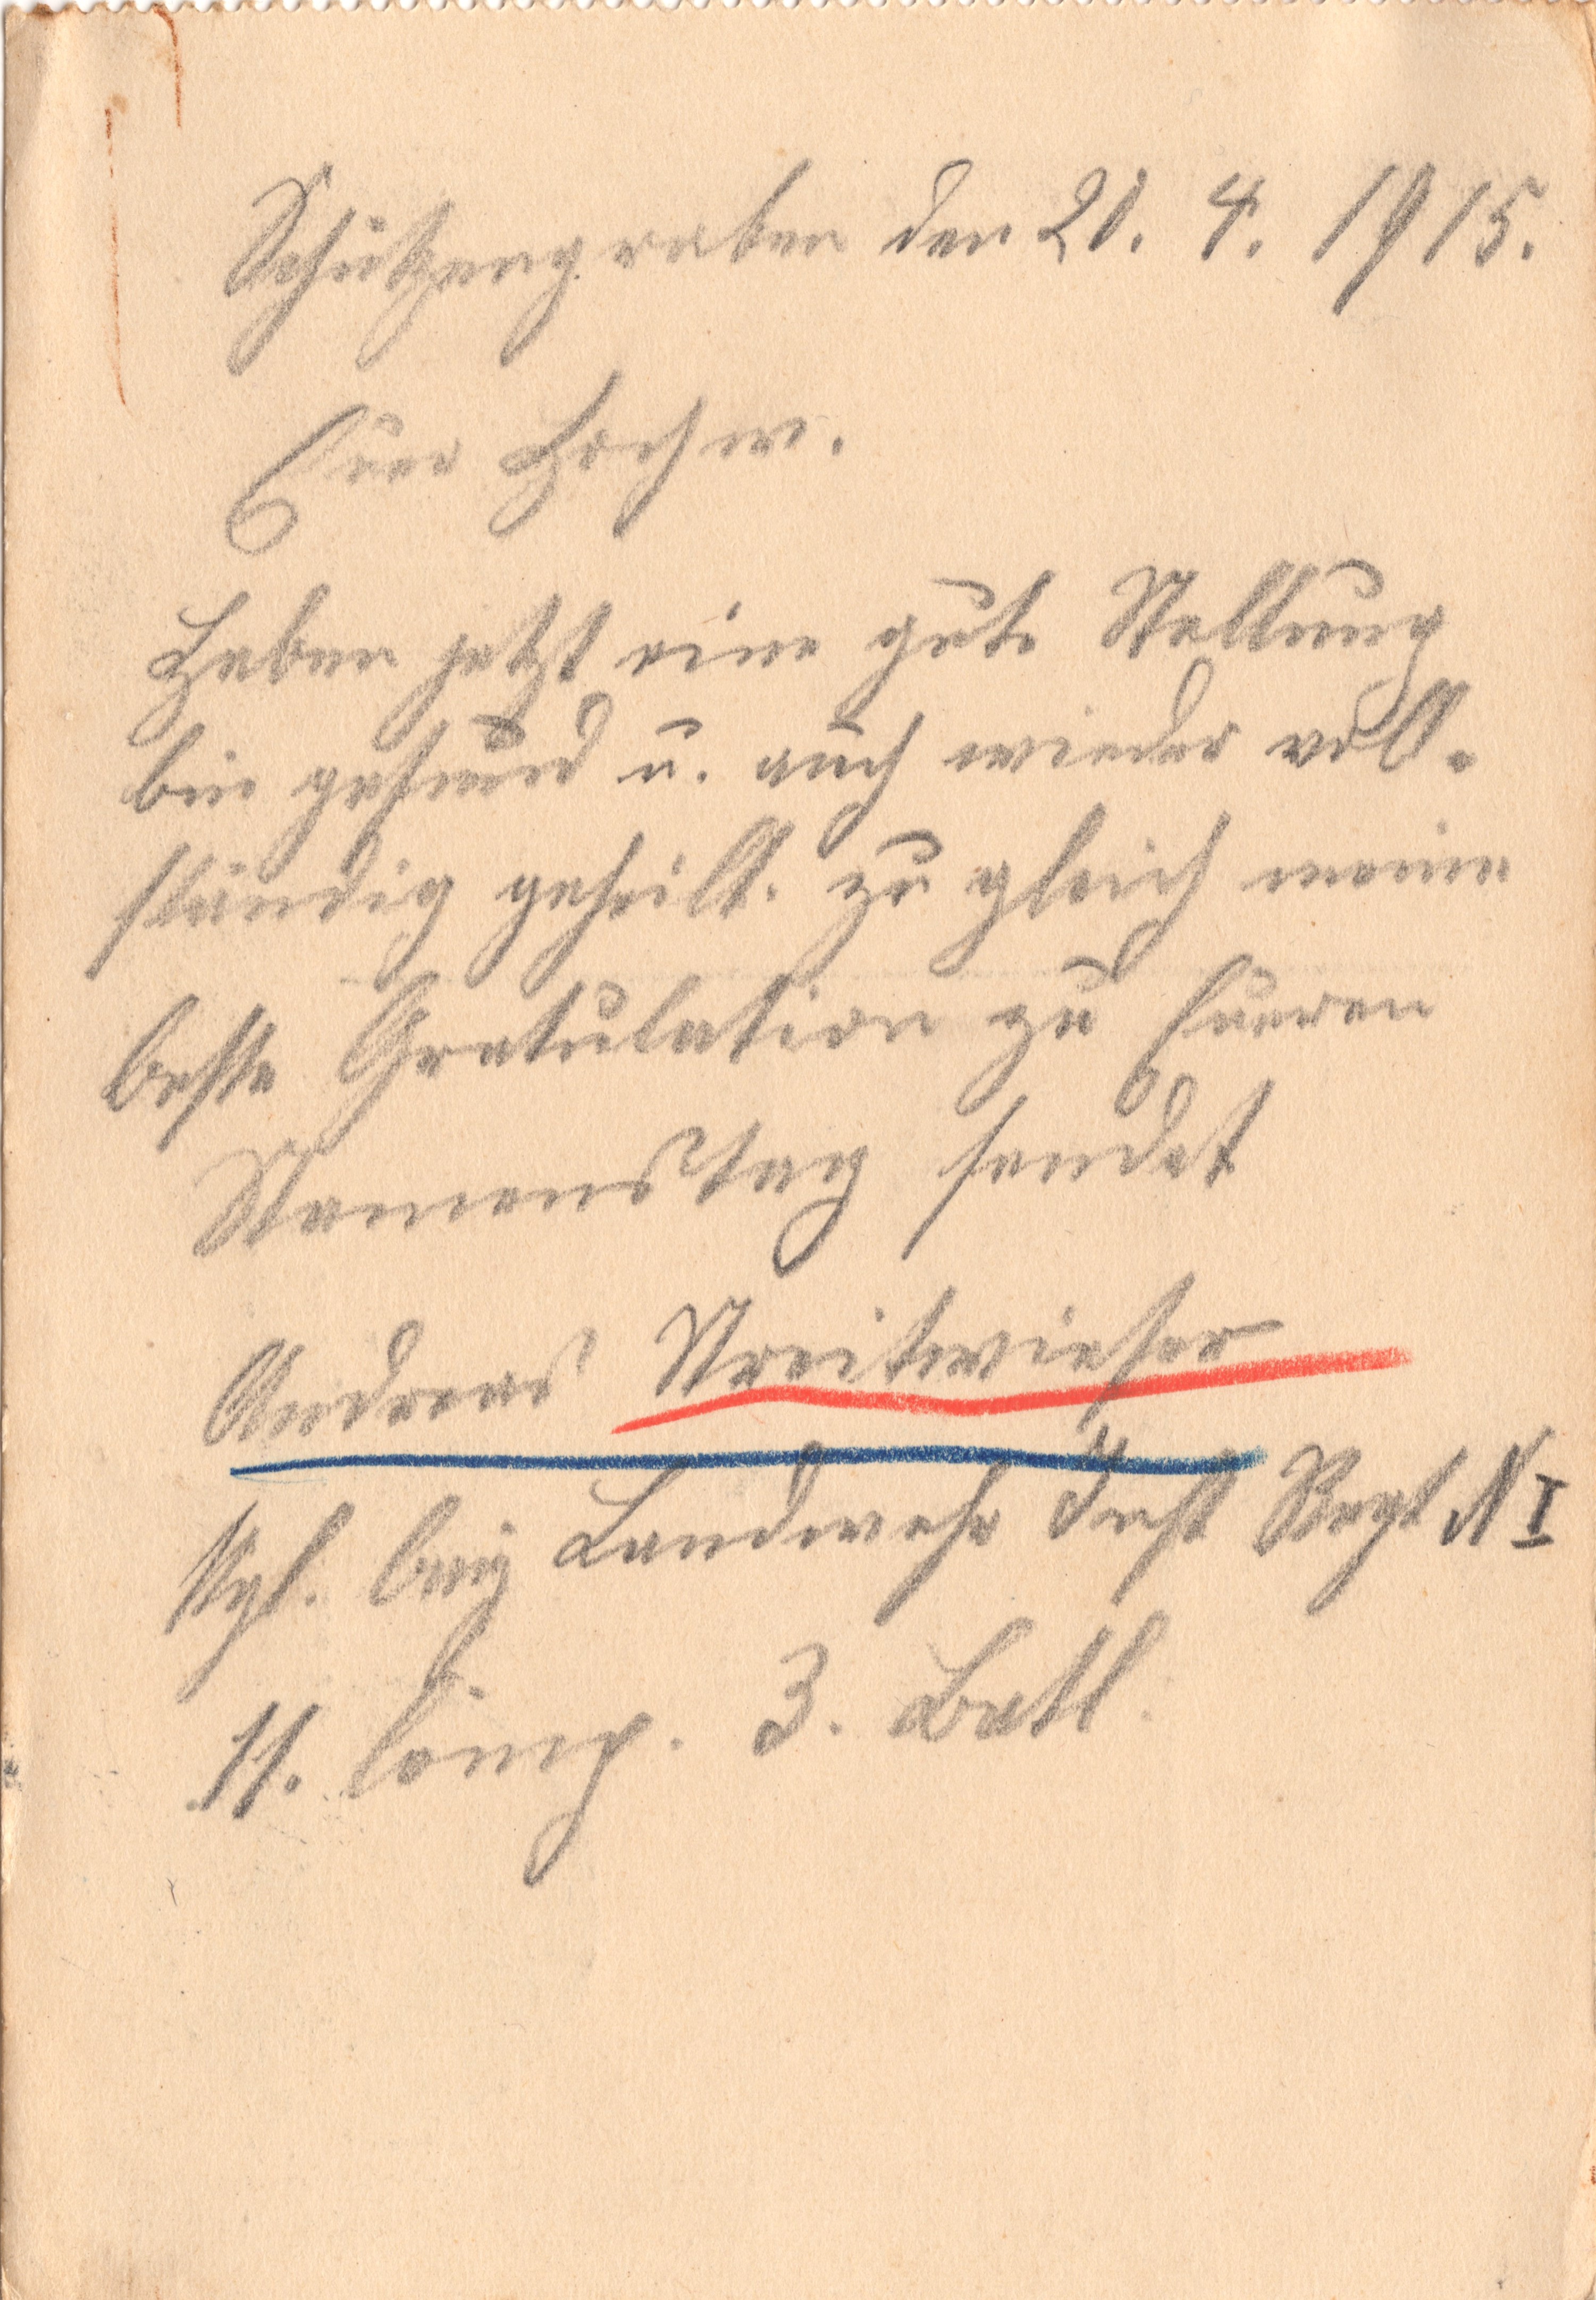 Schützengraben den 21. 4. 1915.
Euer Hochw.
Haben jetzt eine gute Stellung
bin gesund u. auch wieder voll-
ständig geheilt. zu gleich meine
beste Gratulation zu Eueren
Namenstag sendet
Andreas Streitwieser
Kgl. bay Landwehr Inft Regt N I
11. Comp. 3. Batl.